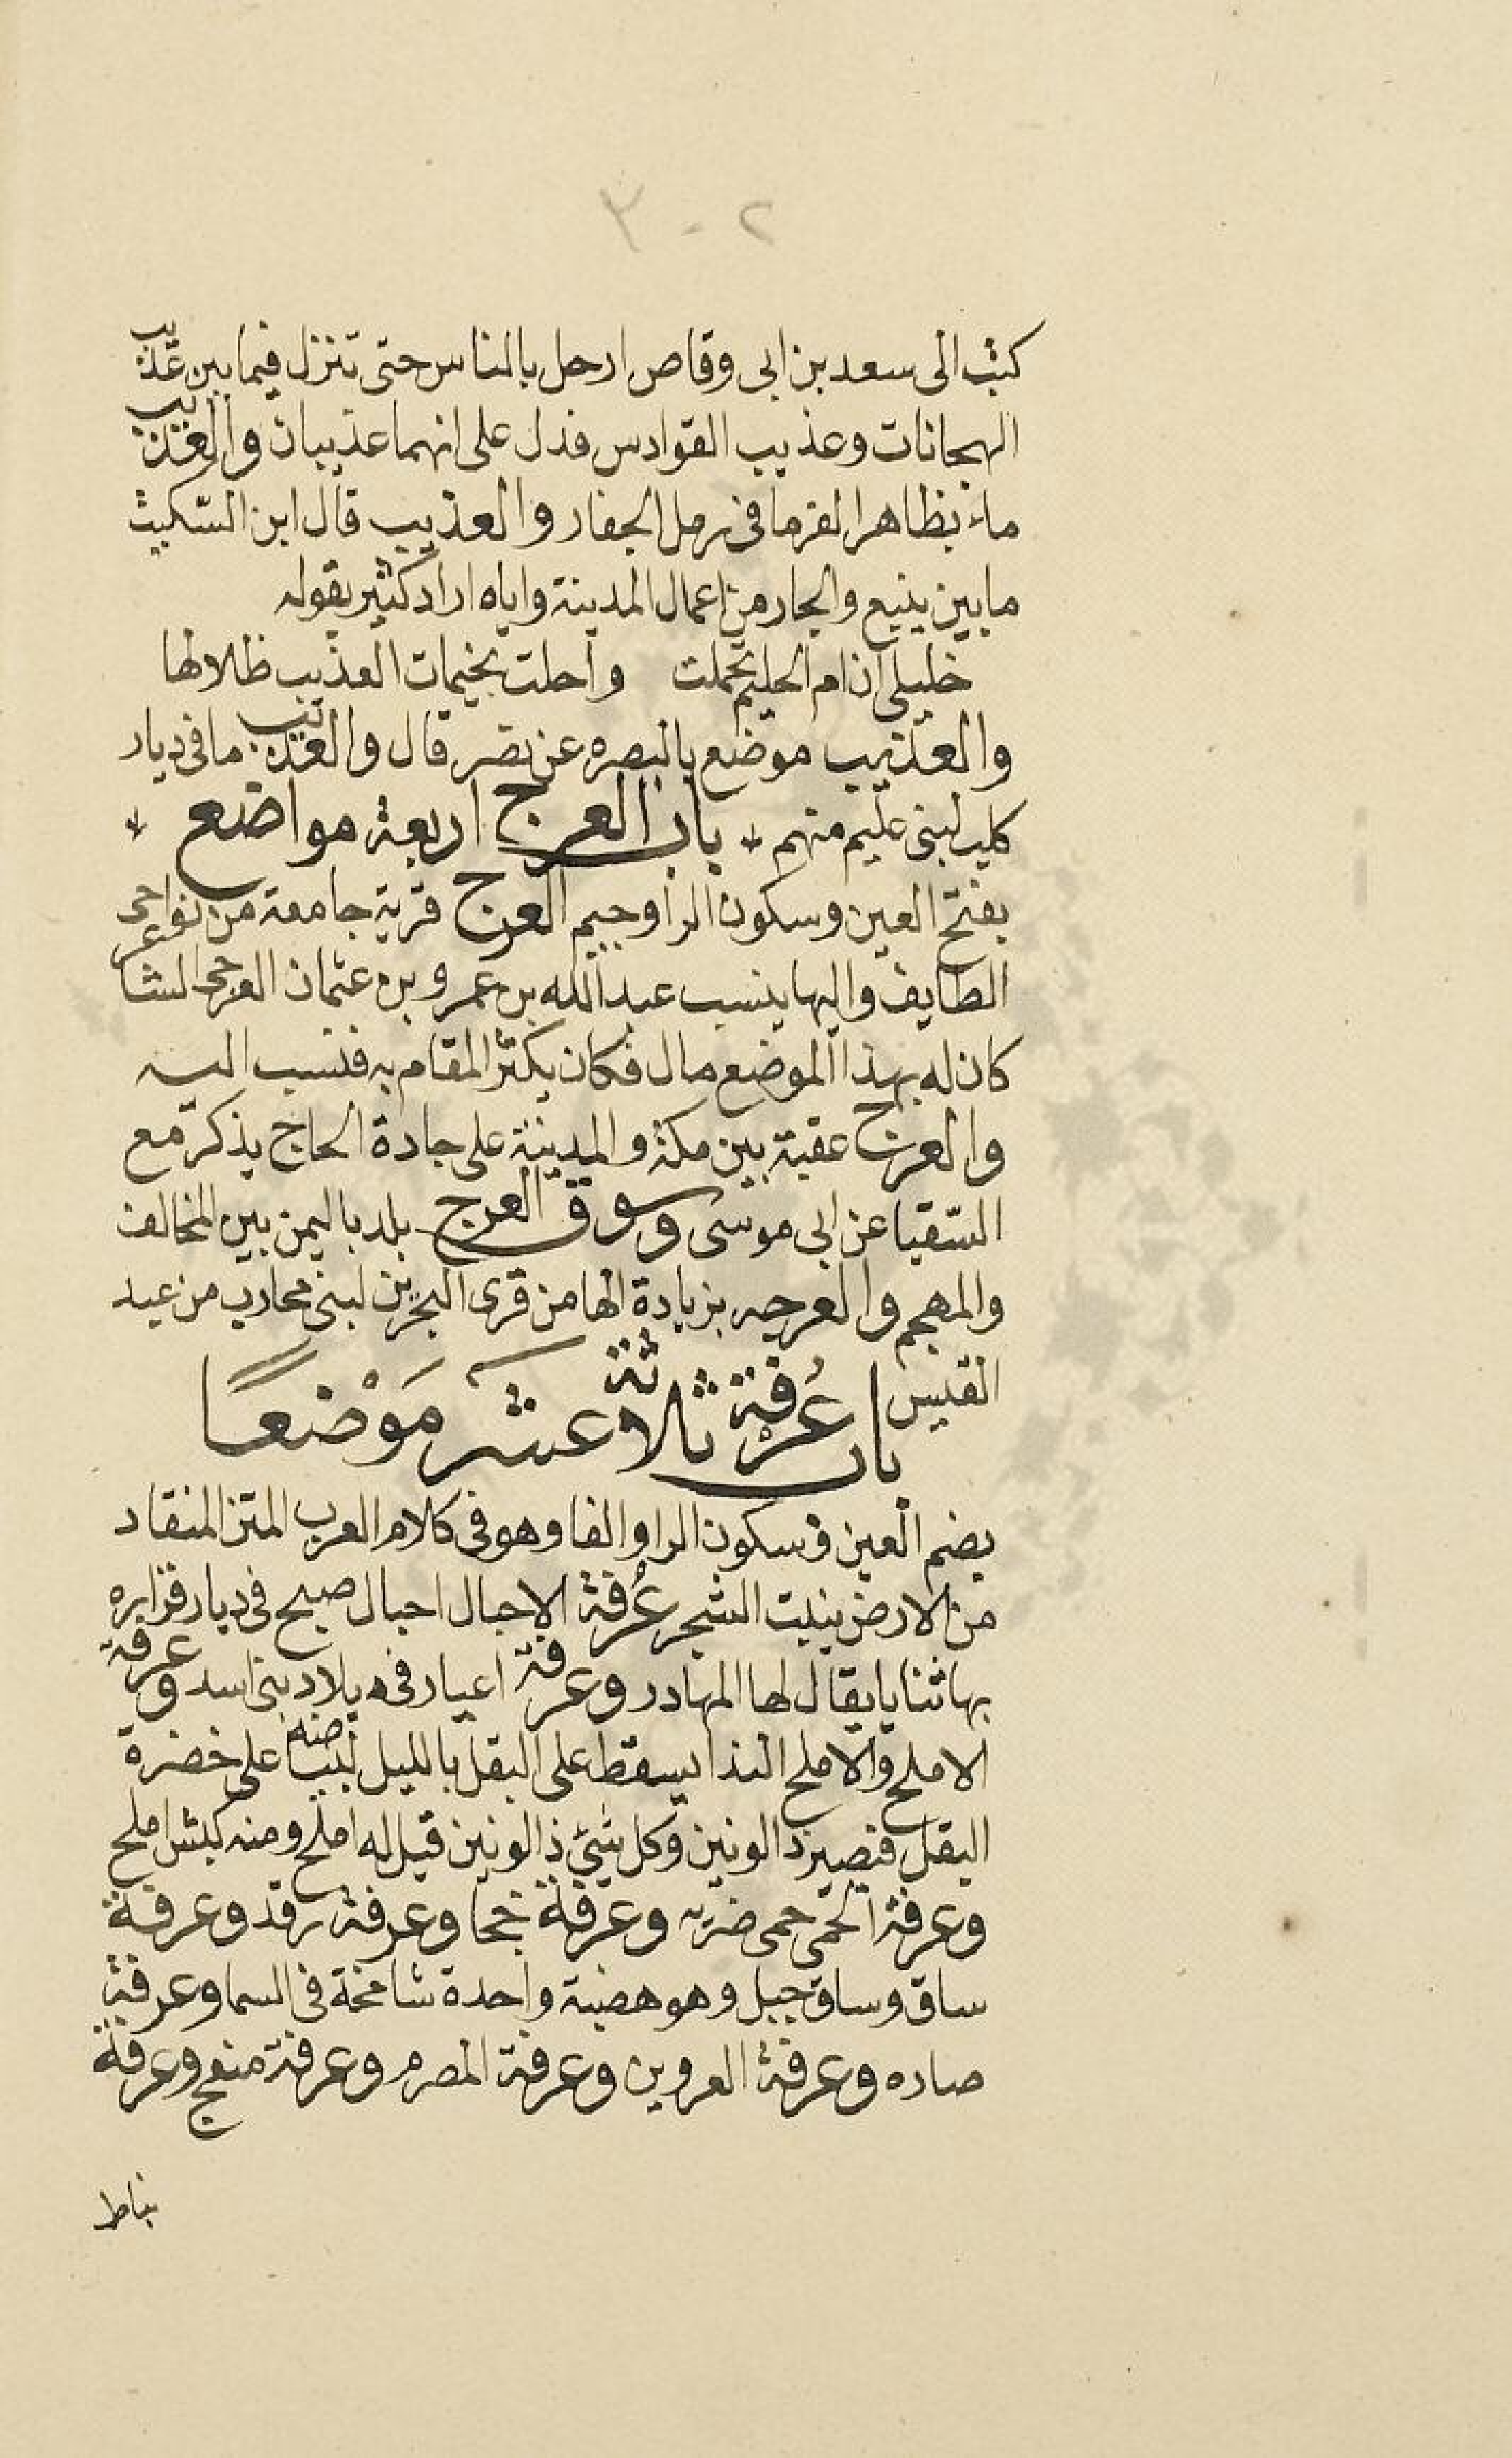 ٢٠٣
كتب الى سعد بن ابى وقاص ارحل بالناس حتى تنزل فيما بين عذيب
الهجانات وعذيب القوادس فدل على انهما عذيبان والعذيب
ماء بظاهر الفرما فى رمل الجفار والعذيب قال ابن السكيت
ما بين ينبع والجار من اعمال المدينة واياه اراد كثير بقوله
خليلى ان ام الحليم تحملت واحلت بخيمات العذيب ظلالها
والعذيب موضع بالبصره عن نصر قال والعذيب ما فى ديار
كليب لبنى عليم منهم باب العرج اربعة مواضع
بفتح العين وسكون الرا وجيم العرج قرية جامعة من نواحى
الطايف واليها ينسب عبد الله بن عمرو بن عثمان العرجى الشاعر
كان له بهذا الموضع مال فكان يكثر المقام به فنسب اليه
والعرج عقبة بين مكة والمدينة على جادة الحاج يذكر مع
السقيا عن ابى موسى وسوق العرج بلد باليمن بين المخالف
والمهجم والعرجه بزيادة الها من قرى البحرين لبنى محارب من عبد
القيس
باب عُرْفة ثلاثة عشر مَوْضعًا
بضم العين وسكون الرا والفا وهو فى كلام العرب المتن المنقاد
من الارض ينبت الشجر عُرفة الاجبال اجبال صبح فى ديار فزاره
بها ثنايا يقال لها المهادر وعرفة اعيار فى بلاد بنى اسد وعرفة
الاملح والاملح الندا يسقط على البقل بالليل لبياضه على خضرة
البقل فتصير ذا لونين وكل شئ ذا لونين قيل له املح ومنه كبش املح
وعرفة الحمى حمى ضريه وعرفة خجا وعرفة رقد وعرفة
ساق وساق جبل وهو هضبة واحدة شامخة فى السما وعرفة
صاره وعرفة الفروين وعرفة المصرم وعرفة منعج وعرفة
نباط